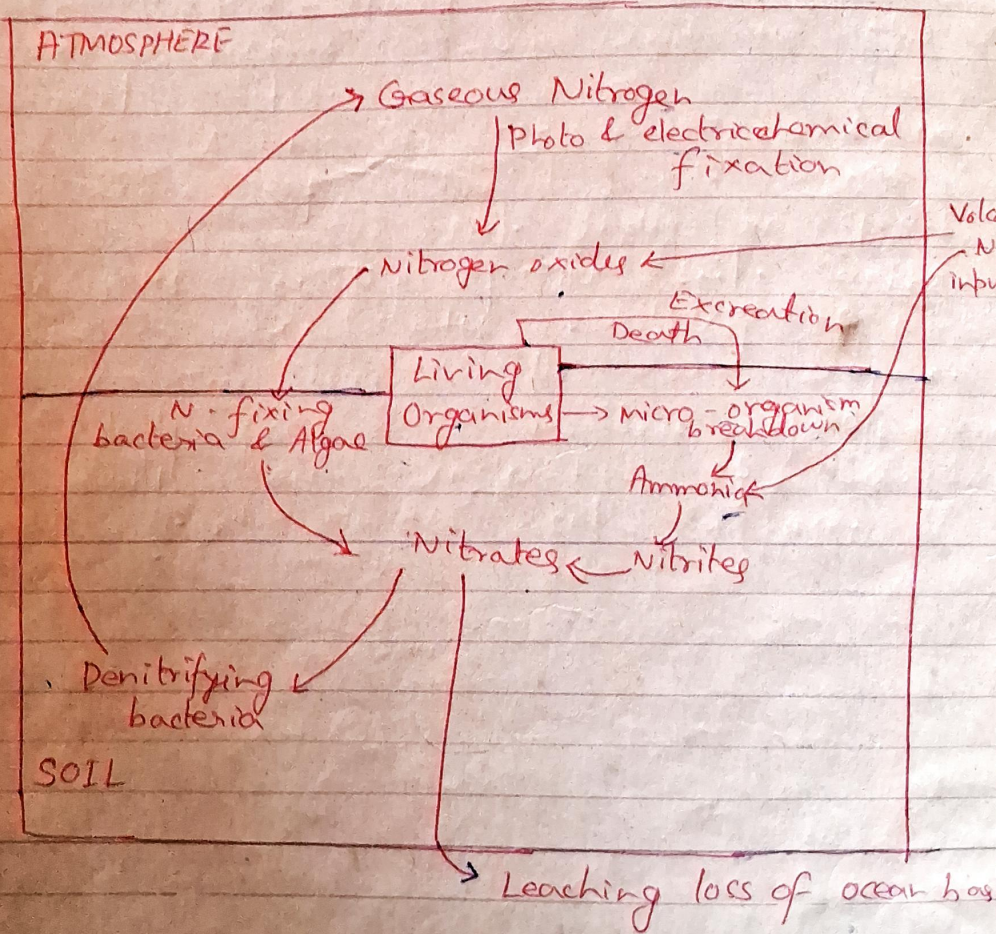 ATMOSPHERE
Gaseous Nitrogen
Photo & electricchamical
fixation
Nitrogen oxides
Excreation
Death
Living
Organisms
N-fixing
bacteria & Algae
micro-organism
breakdown
Ammonia
Nitrates
Nitrites
Denitrifying
bacteria
SOIL
Leaching loss of ocean